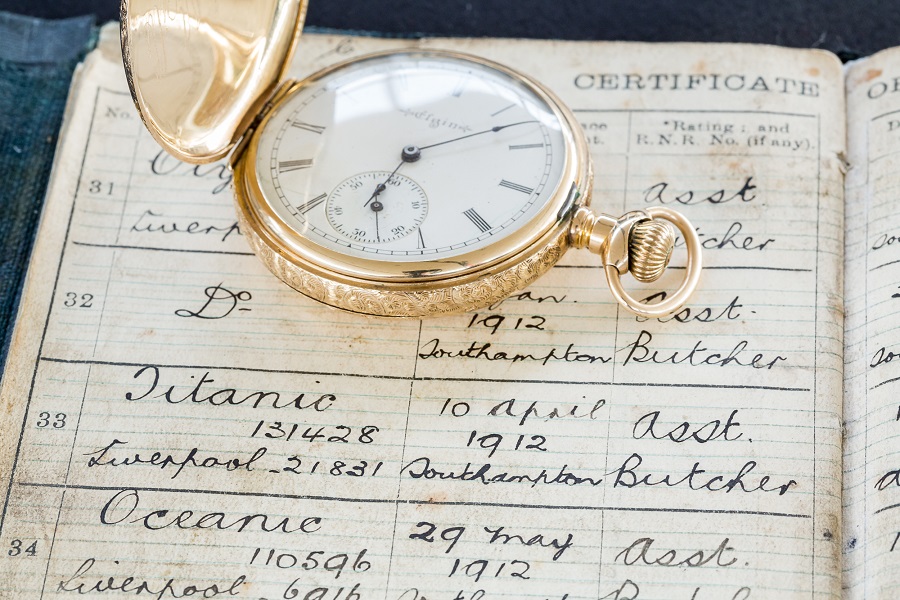 CERTIFICATE
No.
*Rating; and
R.N.R. No. (if any).
31
Asst.
Liverp
utcher
32
Do
an.
1912
Asst.
Southampton
Butcher
33
Titanic
131428
Liverpool - 21831
10 April
1912
Southampton
Asst.
Butcher
34
Oceanic
110596
Liverpool 6916
29 May
1912
Asst.
Elgin
50
60
10
20
30